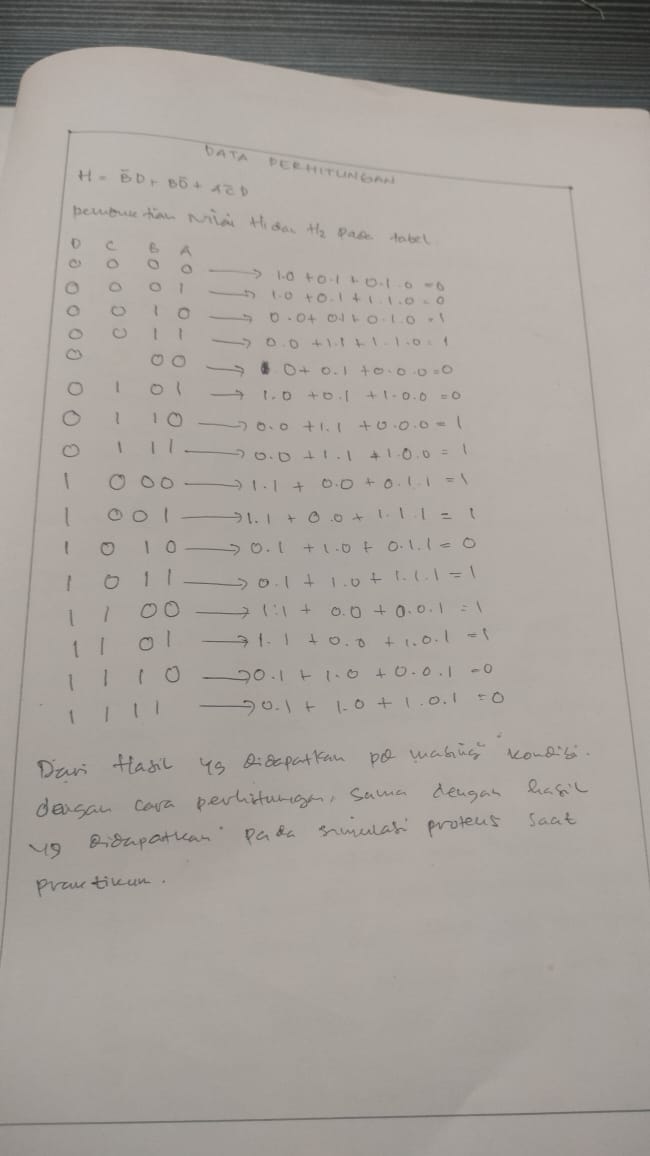 DATA PERHITUNGAN
H = B̄D + BD̄ + AC̄D
pembuktian Nilai H₁ dan H₂ pada tabel
D C B A
0 0 0 0 → 1.0 + 0.1 + 0.1.0 = 0
0 0 0 1 → 1.0 + 0.1 + 1.1.0 = 0
0 0 1 0 → 0.0 + 0.1 + 0.1.0 = 1
0 0 1 1 → 0.0 + 1.1 + 1.1.0 = 1
0 0 0 → .0 + 0.1 + 0.0.0 = 0
0 1 0 1 → 1.0 + 0.1 + 1.0.0 = 0
0 1 1 0 → 0.0 + 1.1 + 0.0.0 = 1
0 1 1 1 → 0.0 + 1.1 + 1.0.0 = 1
1 0 0 0 → 1.1 + 0.0 + 0.1.1 = 1
1 0 0 1 → 1.1 + 0.0 + 1.1.1 = 1
1 0 1 0 → 0.1 + 1.0 + 0.1.1 = 0
1 0 1 1 → 0.1 + 1.0 + 1.1.1 = 1
1 1 0 0 → 1.1 + 0.0 + 0.0.1 = 1
1 1 0 1 → 1.1 + 0.0 + 1.0.1 = 1
1 1 1 0 → 0.1 + 1.0 + 0.0.1 = 0
1 1 1 1 → 0.1 + 1.0 + 1.0.1 = 0
Dari Hasil yg Didapatkan pd masing" kondisi.
dengan cara perhitungan, sama dengan hasil
yg Didapatkan pada simulasi proteus saat
praktikum.